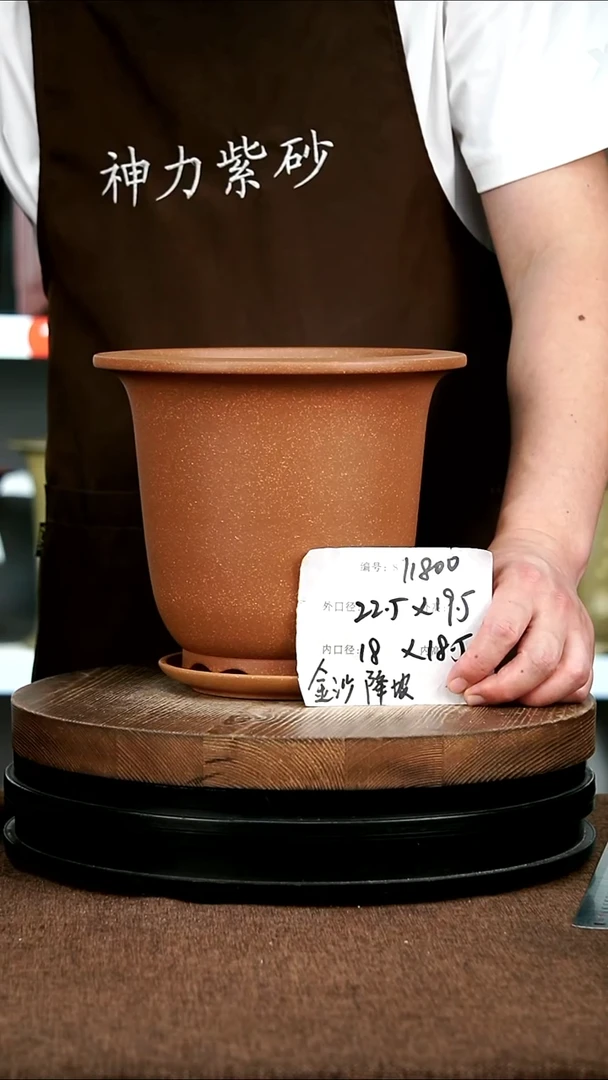 神力紫砂
编号: 11800
外口径 22.5×19.5
内口径: 18×18.5
金沙降坡